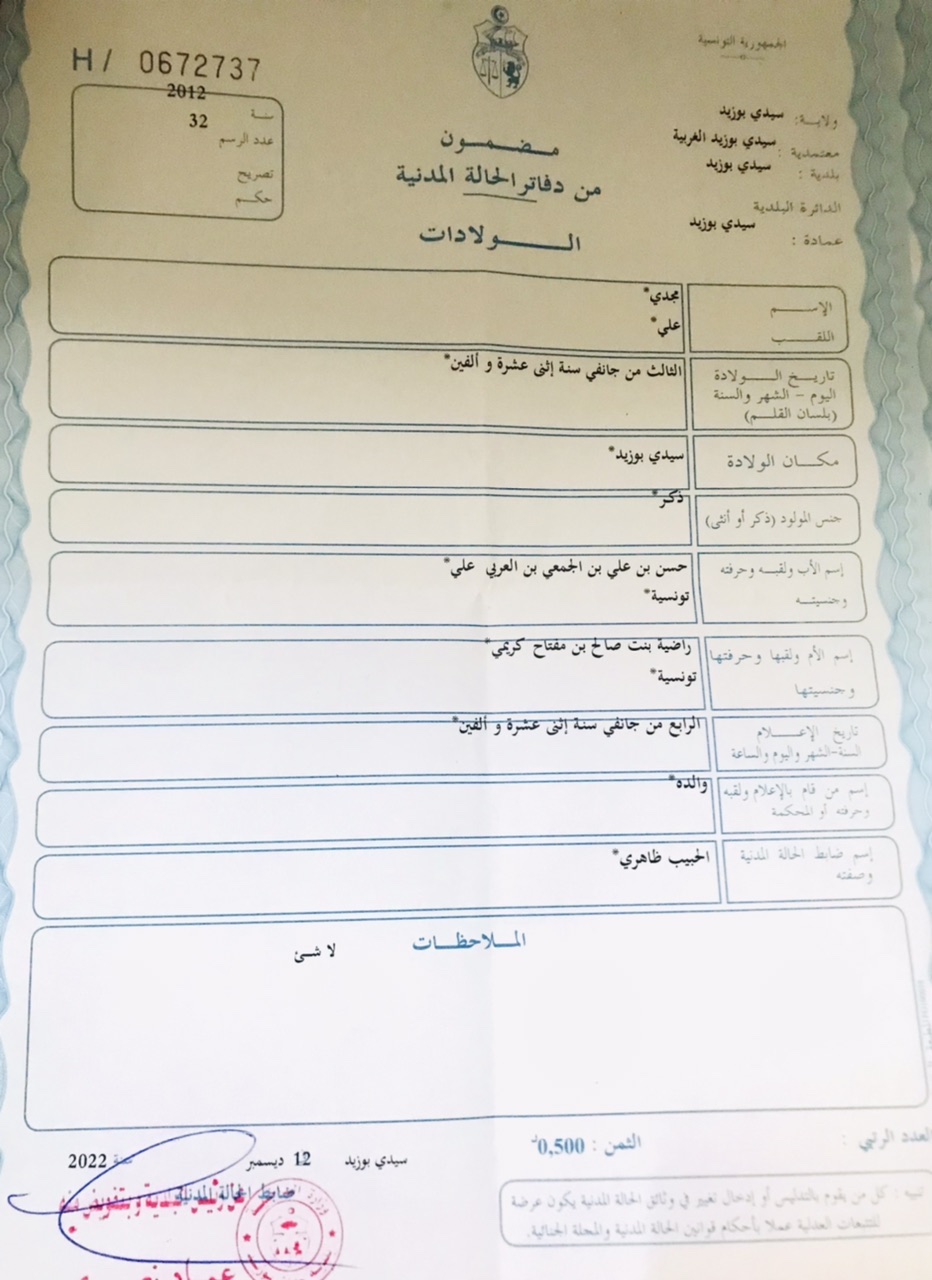 الجمهورية التونسية
H/ 0672737
سنة 2012
عدد الرسم 32
تصريح
حكم
ولاية: سيدي بوزيد
معتمدية : سيدي بوزيد الغربية
بلدية : سيدي بوزيد
الدائرة البلدية
عمادة : سيدي بوزيد
مضمون
من دفاتر الحالة المدنية
الولادات
الإسم مجدي*
اللقب علي*
تاريخ الولادة الثالث من جانفي سنة إثنى عشرة و ألفين*
اليوم - الشهر والسنة
(بلسان القلم)
مكان الولادة سيدي بوزيد*
جنس المولود (ذكر أو أنثى) ذكر*
إسم الأب ولقبه وحرفته حسن بن علي بن الجمعي بن العربي علي*
وجنسيته تونسية*
إسم الأم ولقبها وحرفتها راضية بنت صالح بن مفتاح كريمي*
وجنسيتها تونسية*
تاريخ الإعلام الرابع من جانفي سنة إثنى عشرة و ألفين*
السنة-الشهر واليوم والساعة
إسم من قام بالإعلام ولقبه والده*
وحرفته أو المحكمة
إسم ضابط الحالة المدنية الحبيب ظاهري*
وصفته
الملاحظات
لا شئ
العدد الرتبي :
الثمن : 0,500د
سيدي بوزيد 12 ديسمبر سنة 2022
ضابط الحالة المدنية
تنبيه : كل من يقوم بالتدليس أو إدخال تغيير في وثائق الحالة المدنية يكون عرضة
للتتبعات العدلية عملا بأحكام قوانين الحالة المدنية والمجلة الجنائية.